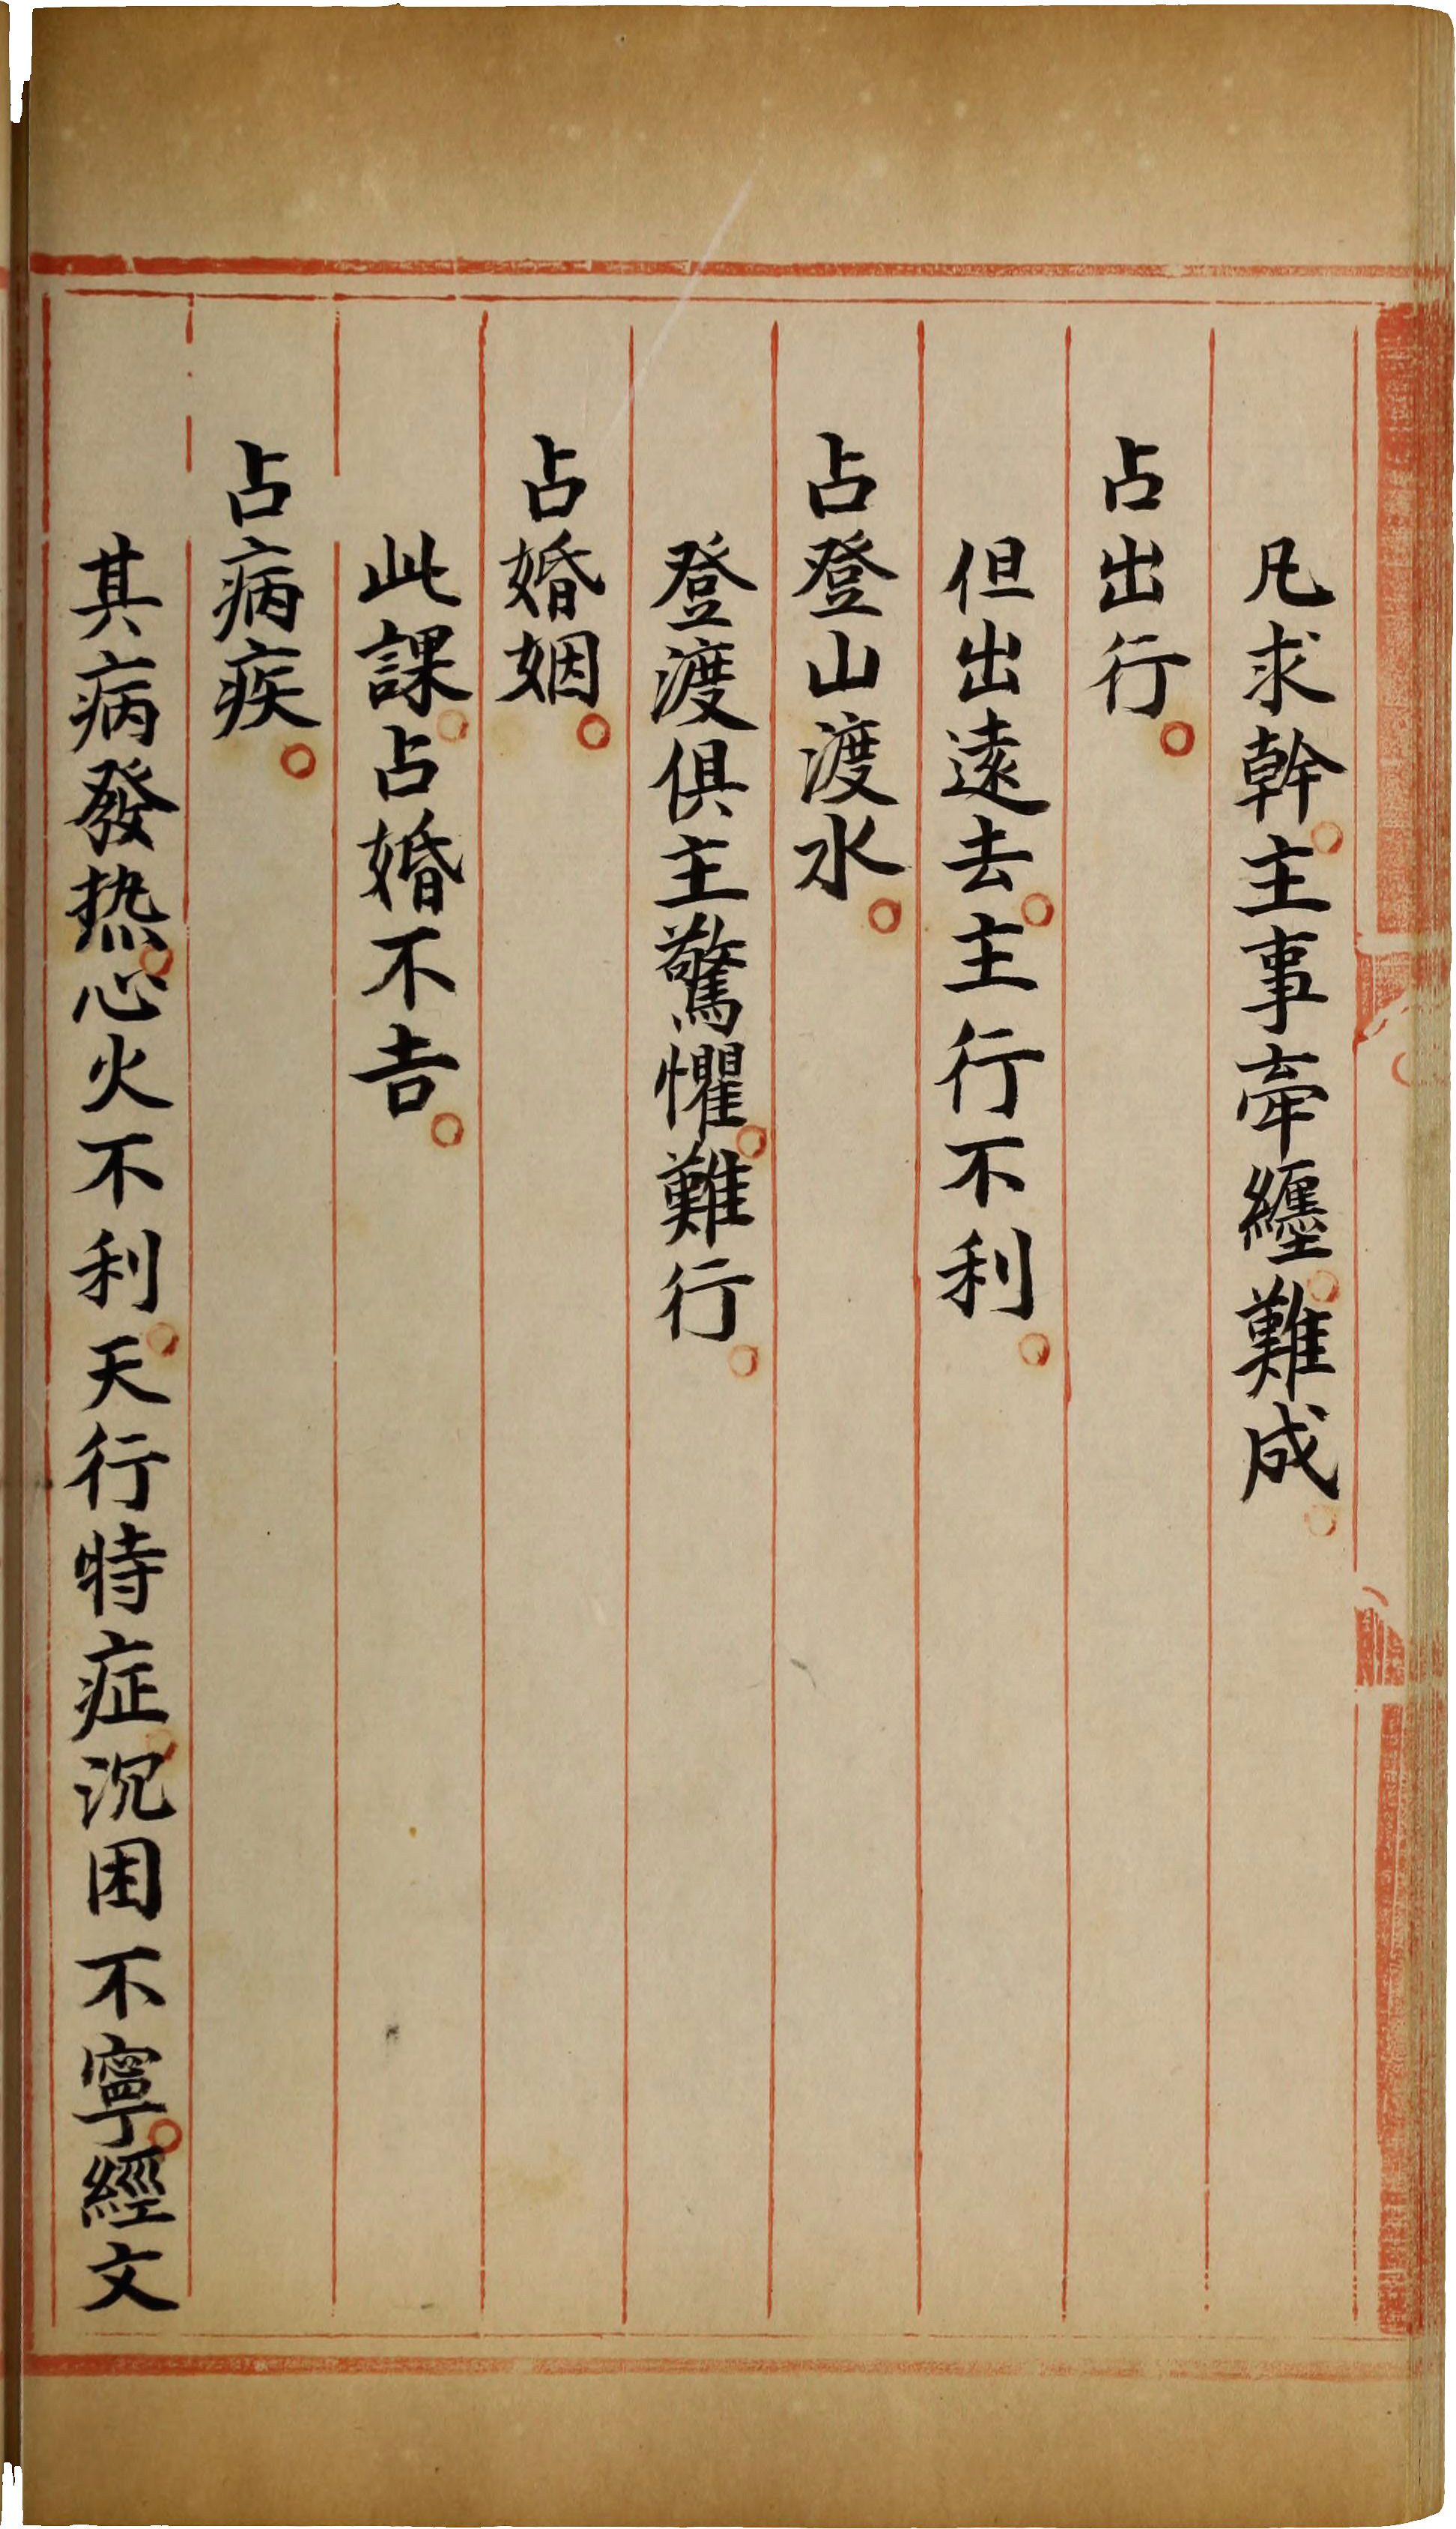 凡求幹。主事牽纏。難成。
占出行。
但出遠去。主行不利。
占登山渡水。
登渡俱主驚懼。難行。
占婚姻。
此課。占婚不吉。
占病疾。
其病發热。心火不利。天行特症。沉困不寧。經文